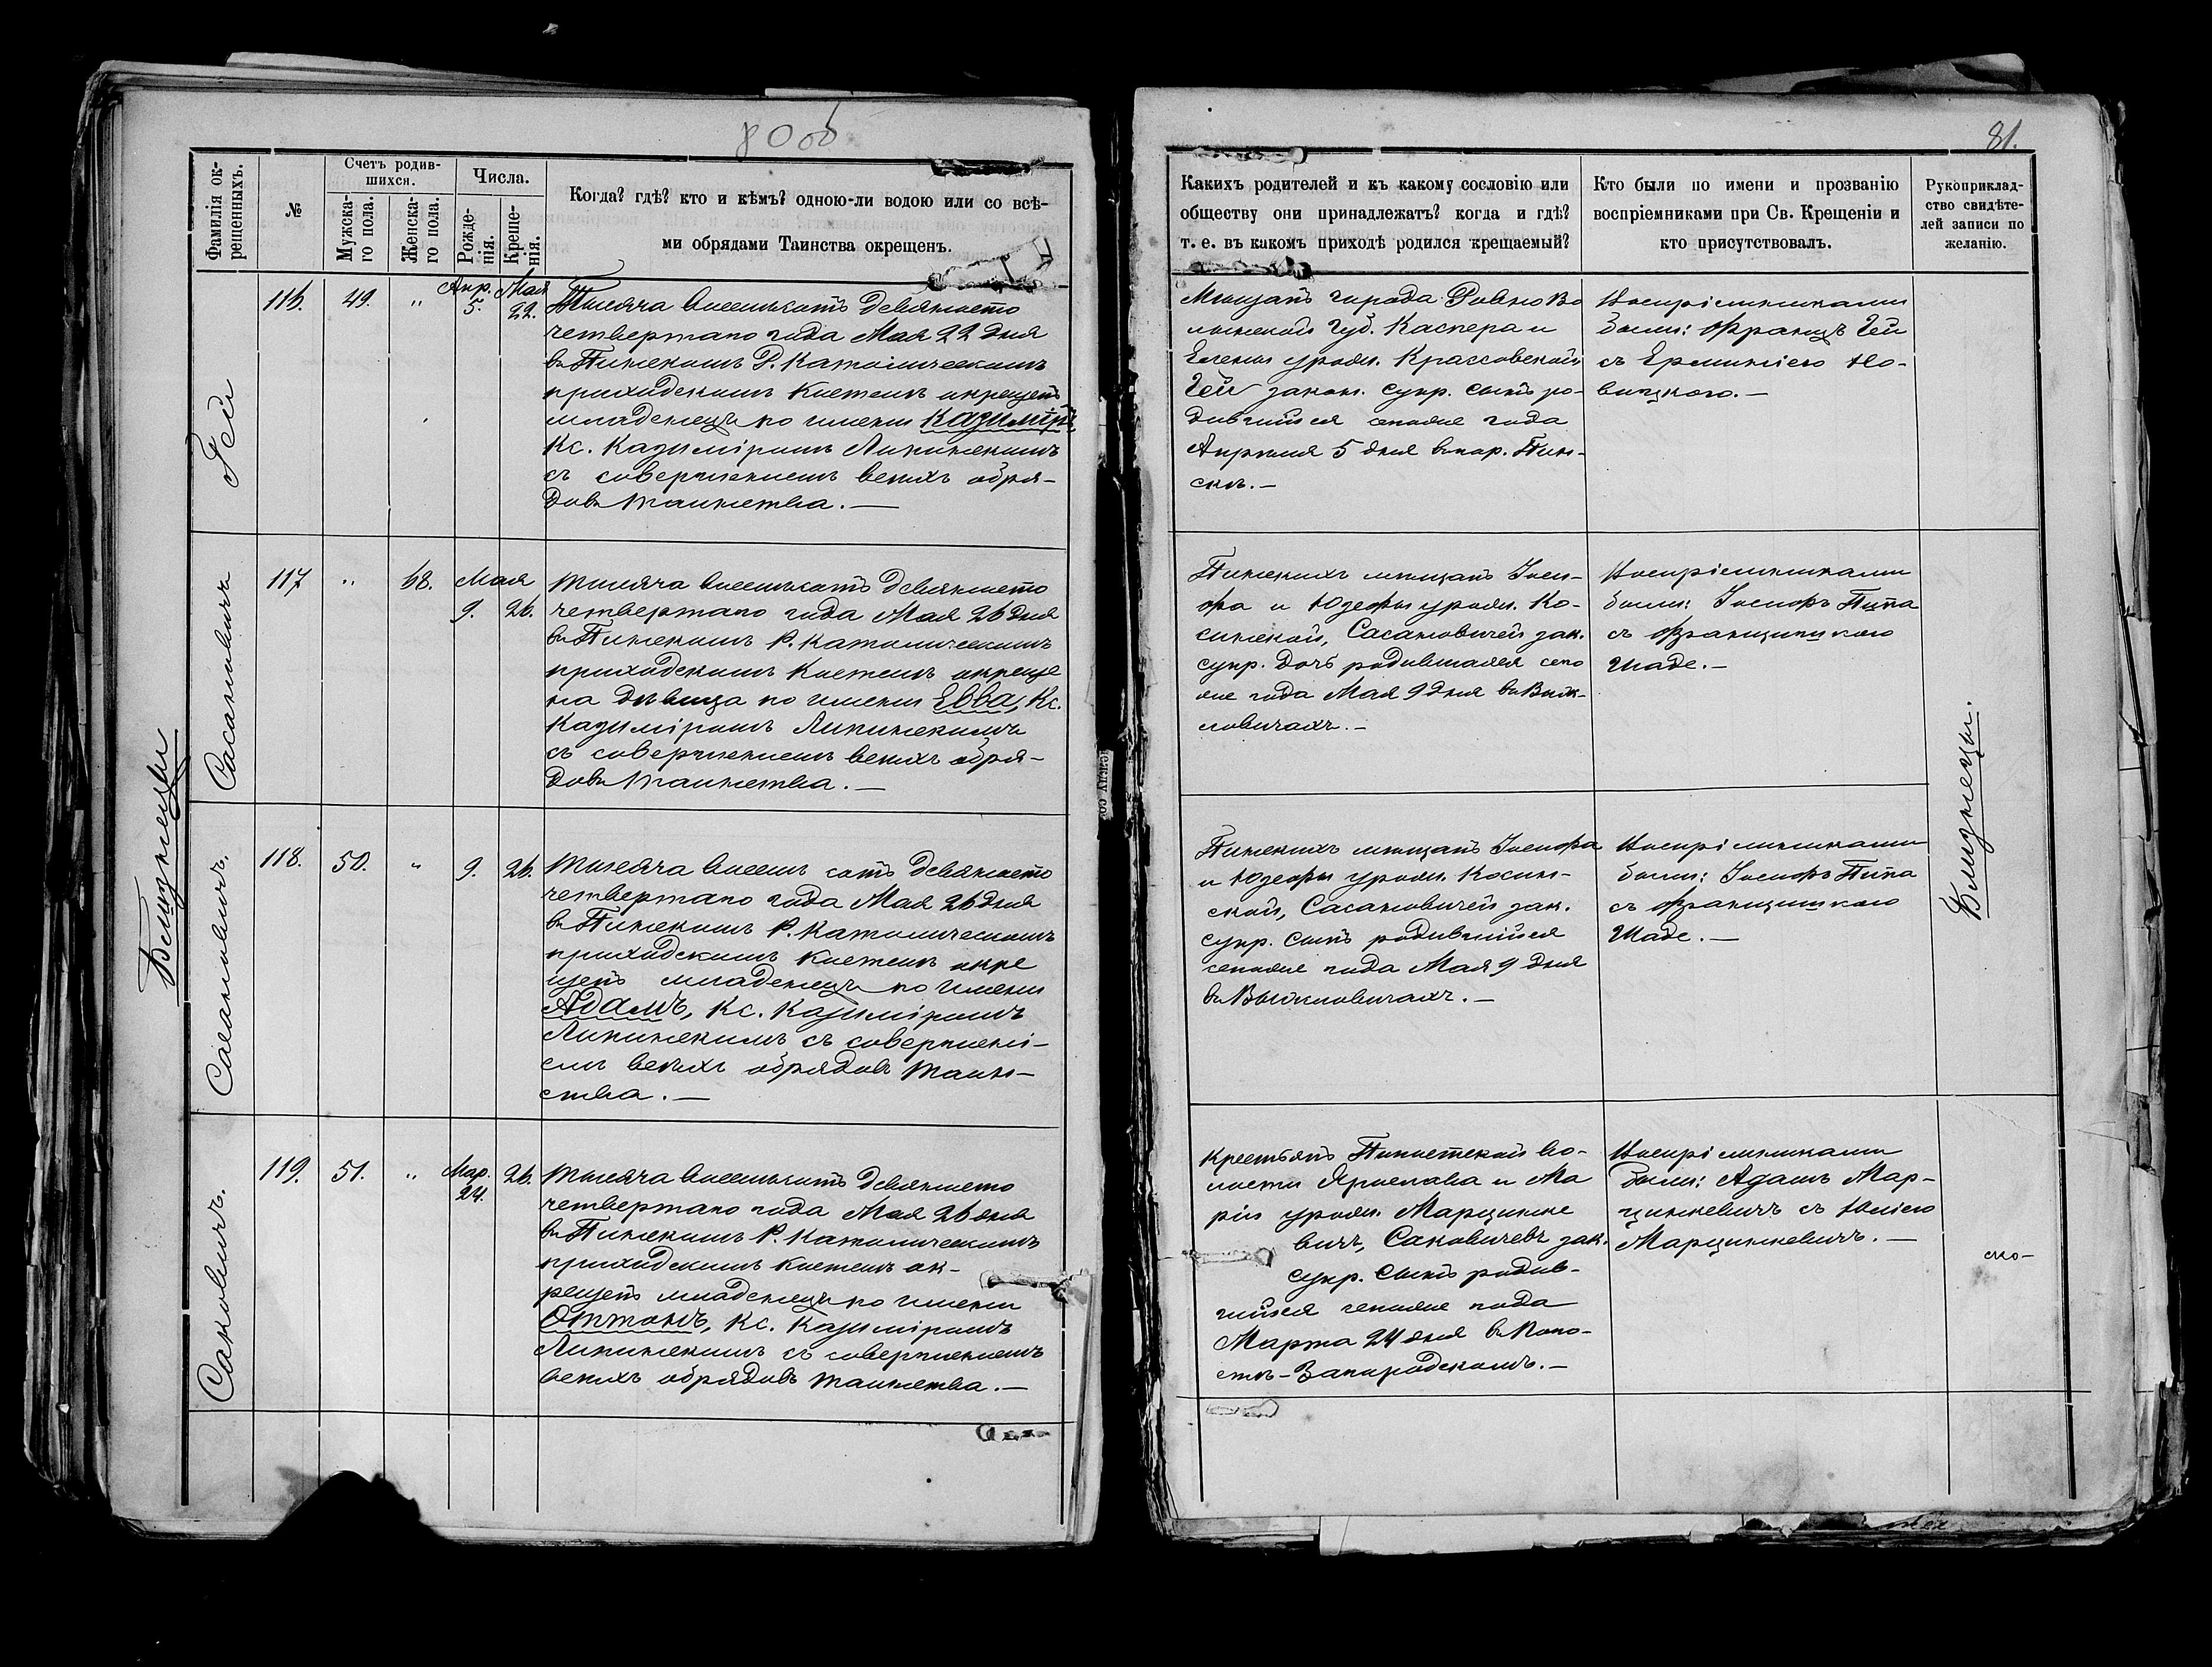 80 об
81.
Фамилія ок-
рещенныхъ.
№
Счетъ родив-
шихся.
Мужска-
го пола.
Женска-
го пола.
Числа.
Рожде-
нія.
Креще-
нія.
Когда? гдѣ? кто и кѣмъ? одною-ли водою или со всѣ-
ми обрядами Таинства окрещенъ.
Какихъ родителей и къ какому сословію или
обществу они принадлежатъ? когда и гдѣ?
т. е. въ какомъ приходѣ родился крещаемый?
Кто были по имени и прозванію
воспріемниками при Св. Крещеніи и
кто присутствовалъ.
Рукоприклад-
ство свидѣте-
лей записи по
желанію.
Гей
116. 49. " Апр. 5. Мая 22.
Тысяча восемьсотъ девяносто
четвертаго года Мая 22 дня
въ Пинскомъ Р. Католическомъ
приходскомъ Костелѣ окрещенъ
младенецъ по имени Казиміръ,
Кс. Казиміромъ Липинскимъ
съ совершеніемъ всѣхъ обря-
довъ таинства. —
Мѣщанъ города Ровно Во
лынской Губ. Каспера и
Евгеніи урожд. Крассовской
Гей закон. супр. сынъ ро-
дившійся сего же года
Апрѣля 5 дня въ пар. Пин-
скѣ. —
Воспріемниками
были: Францъ Гей
съ Ерминіею Но-
вицкою. —
Близнецы
Сасановичъ
117 " 68. Мая 9. 26.
Тысяча восемьсотъ девяносто
четвертаго года Мая 26 дня
въ Пинскомъ Р. Католическомъ
приходскомъ Костелѣ окреще
на дѣвица по имени Евва, Кс.
Казиміромъ Липинскимъ
съ совершеніемъ всѣхъ обря-
довъ таинства. —
Пинскихъ мѣщанъ Іоси-
фа и Юзефы урожд. Ко-
синской, Сасановичей зак.
супр. дочь родившаяся сего
же года Мая 9 дня въ Выж-
ловичахъ. —
Воспріемниками
были: Іосифъ Пипа
съ Францишкою
Шаде. —
Близнецы.
Сасановичъ.
118. 50. " 9. 26.
Тысяча восемь сотъ девяносто
четвертаго года Мая 26 дня
въ Пинскомъ Р. Католическомъ
приходскомъ Костелѣ окре
щенъ младенецъ по имени
Адамъ, Кс. Казиміромъ
Липинскимъ съ совершені-
емъ всѣхъ обрядовъ таин-
ства. —
Пинскихъ мѣщанъ Іосифа
и Юзефы урожд. Косин-
ской, Сасановичей зак.
супр. сынъ родившійся
сего же года Мая 9 дня
въ Выжловичахъ. —
Воспріемниками
были: Іосифъ Пипа
съ Францишкою
Шаде. —
Саковичъ.
119. 51. " Мар. 24. 26.
Тысяча восемьсотъ девяносто
четвертаго года Мая 26 дня
въ Пинскомъ Р. Католическомъ
приходскомъ Костелѣ ок-
рещенъ младенецъ по имени
Оттонъ, Кс. Казиміромъ
Липинскимъ съ совершеніемъ
всѣхъ обрядовъ таинства. —
Крестьянъ Пинской во-
лости Ярослава и Ма
ріи урожд. Марцинке
вичъ, Саковичевъ зак.
супр. сынъ родив-
шійся сего же года
Марта 24 дня въ Пого-
стѣ-Загородскомъ. —
Воспріемниками
были: Адамъ Мар-
цинкевичъ съ Юліею
Марцинкевичъ. —